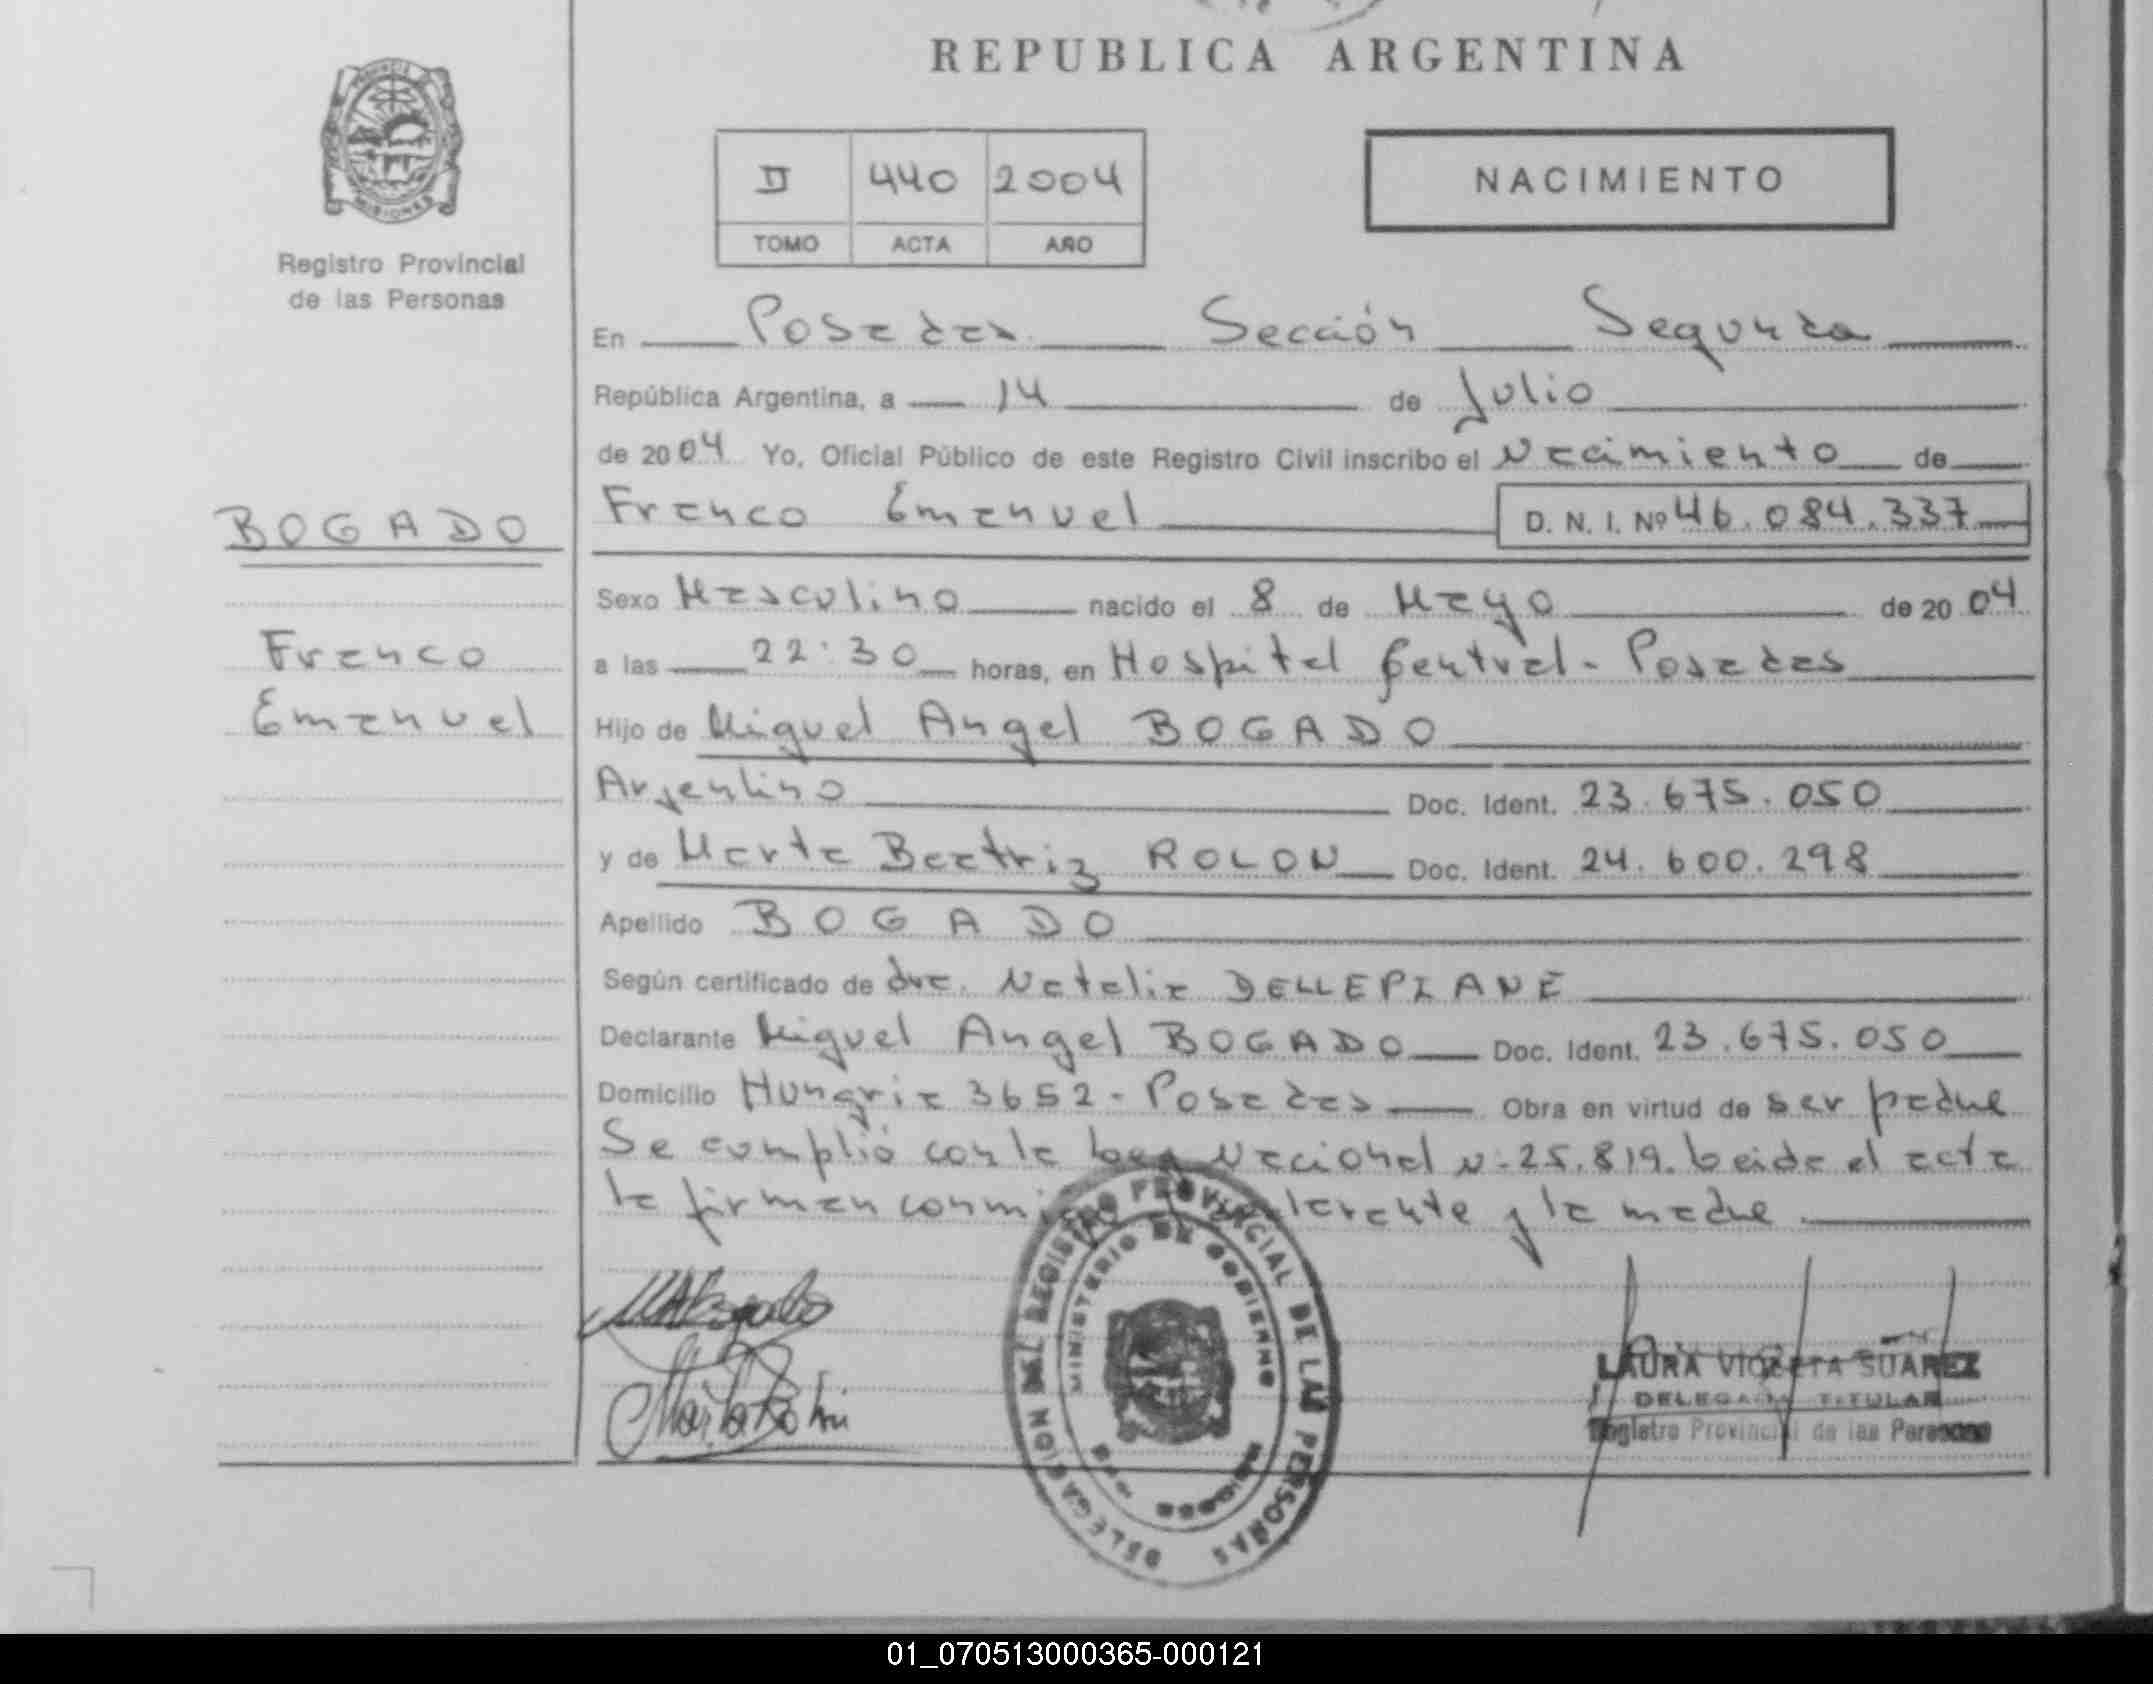 REPUBLICA ARGENTINA
MISIONES
Registro Provincial
de las Personas
II 440 2004
TOMO ACTA AÑO
NACIMIENTO
En Posadas Sección Segunda
República Argentina, a 14 de Julio
de 2004 Yo, Oficial Público de este Registro Civil inscribo el Nacimiento de
BOGADO
Franco Emanuel D. N. I. Nº 46.084.337
Sexo Masculino nacido el 8 de Mayo de 2004
Franco
Emanuel
a las 22:30 horas, en Hospital Central - Posadas
Hijo de Miguel Angel BOGADO
Argentino Doc. Ident. 23.675.050
y de Marta Beatriz ROLON Doc. Ident. 24.600.298
Apellido BOGADO
Según certificado de dra. Natalia DELLEPIANE
Declarante Miguel Angel BOGADO Doc. Ident. 23.675.050
Domicilio Hungria 3652 - Posadas Obra en virtud de ser padre
Se cumplió con la Ley Nacional N-25.819. Leida el acta
la firman conmigo y la madre
DELEGACION DEL REGISTRO PROVINCIAL DE LAS PERSONAS
MINISTERIO DE GOBIERNO
LAURA VIOLETA SUAREZ
DELEGADA TITULAR
Registro Provincial de las Personas
01_070513000365-000121